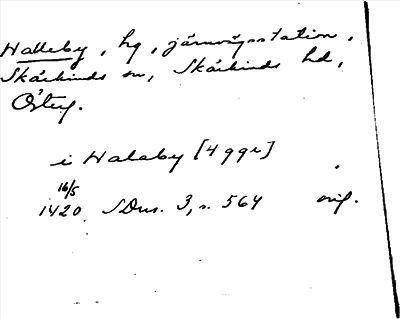 Halleby, hg, järnvägsstation,
Skärkinds sn, Skärkinds hd,
Österg.
i Halaby [4 ggr]
16/5
1420 SDns. 3, s. 564 orig.